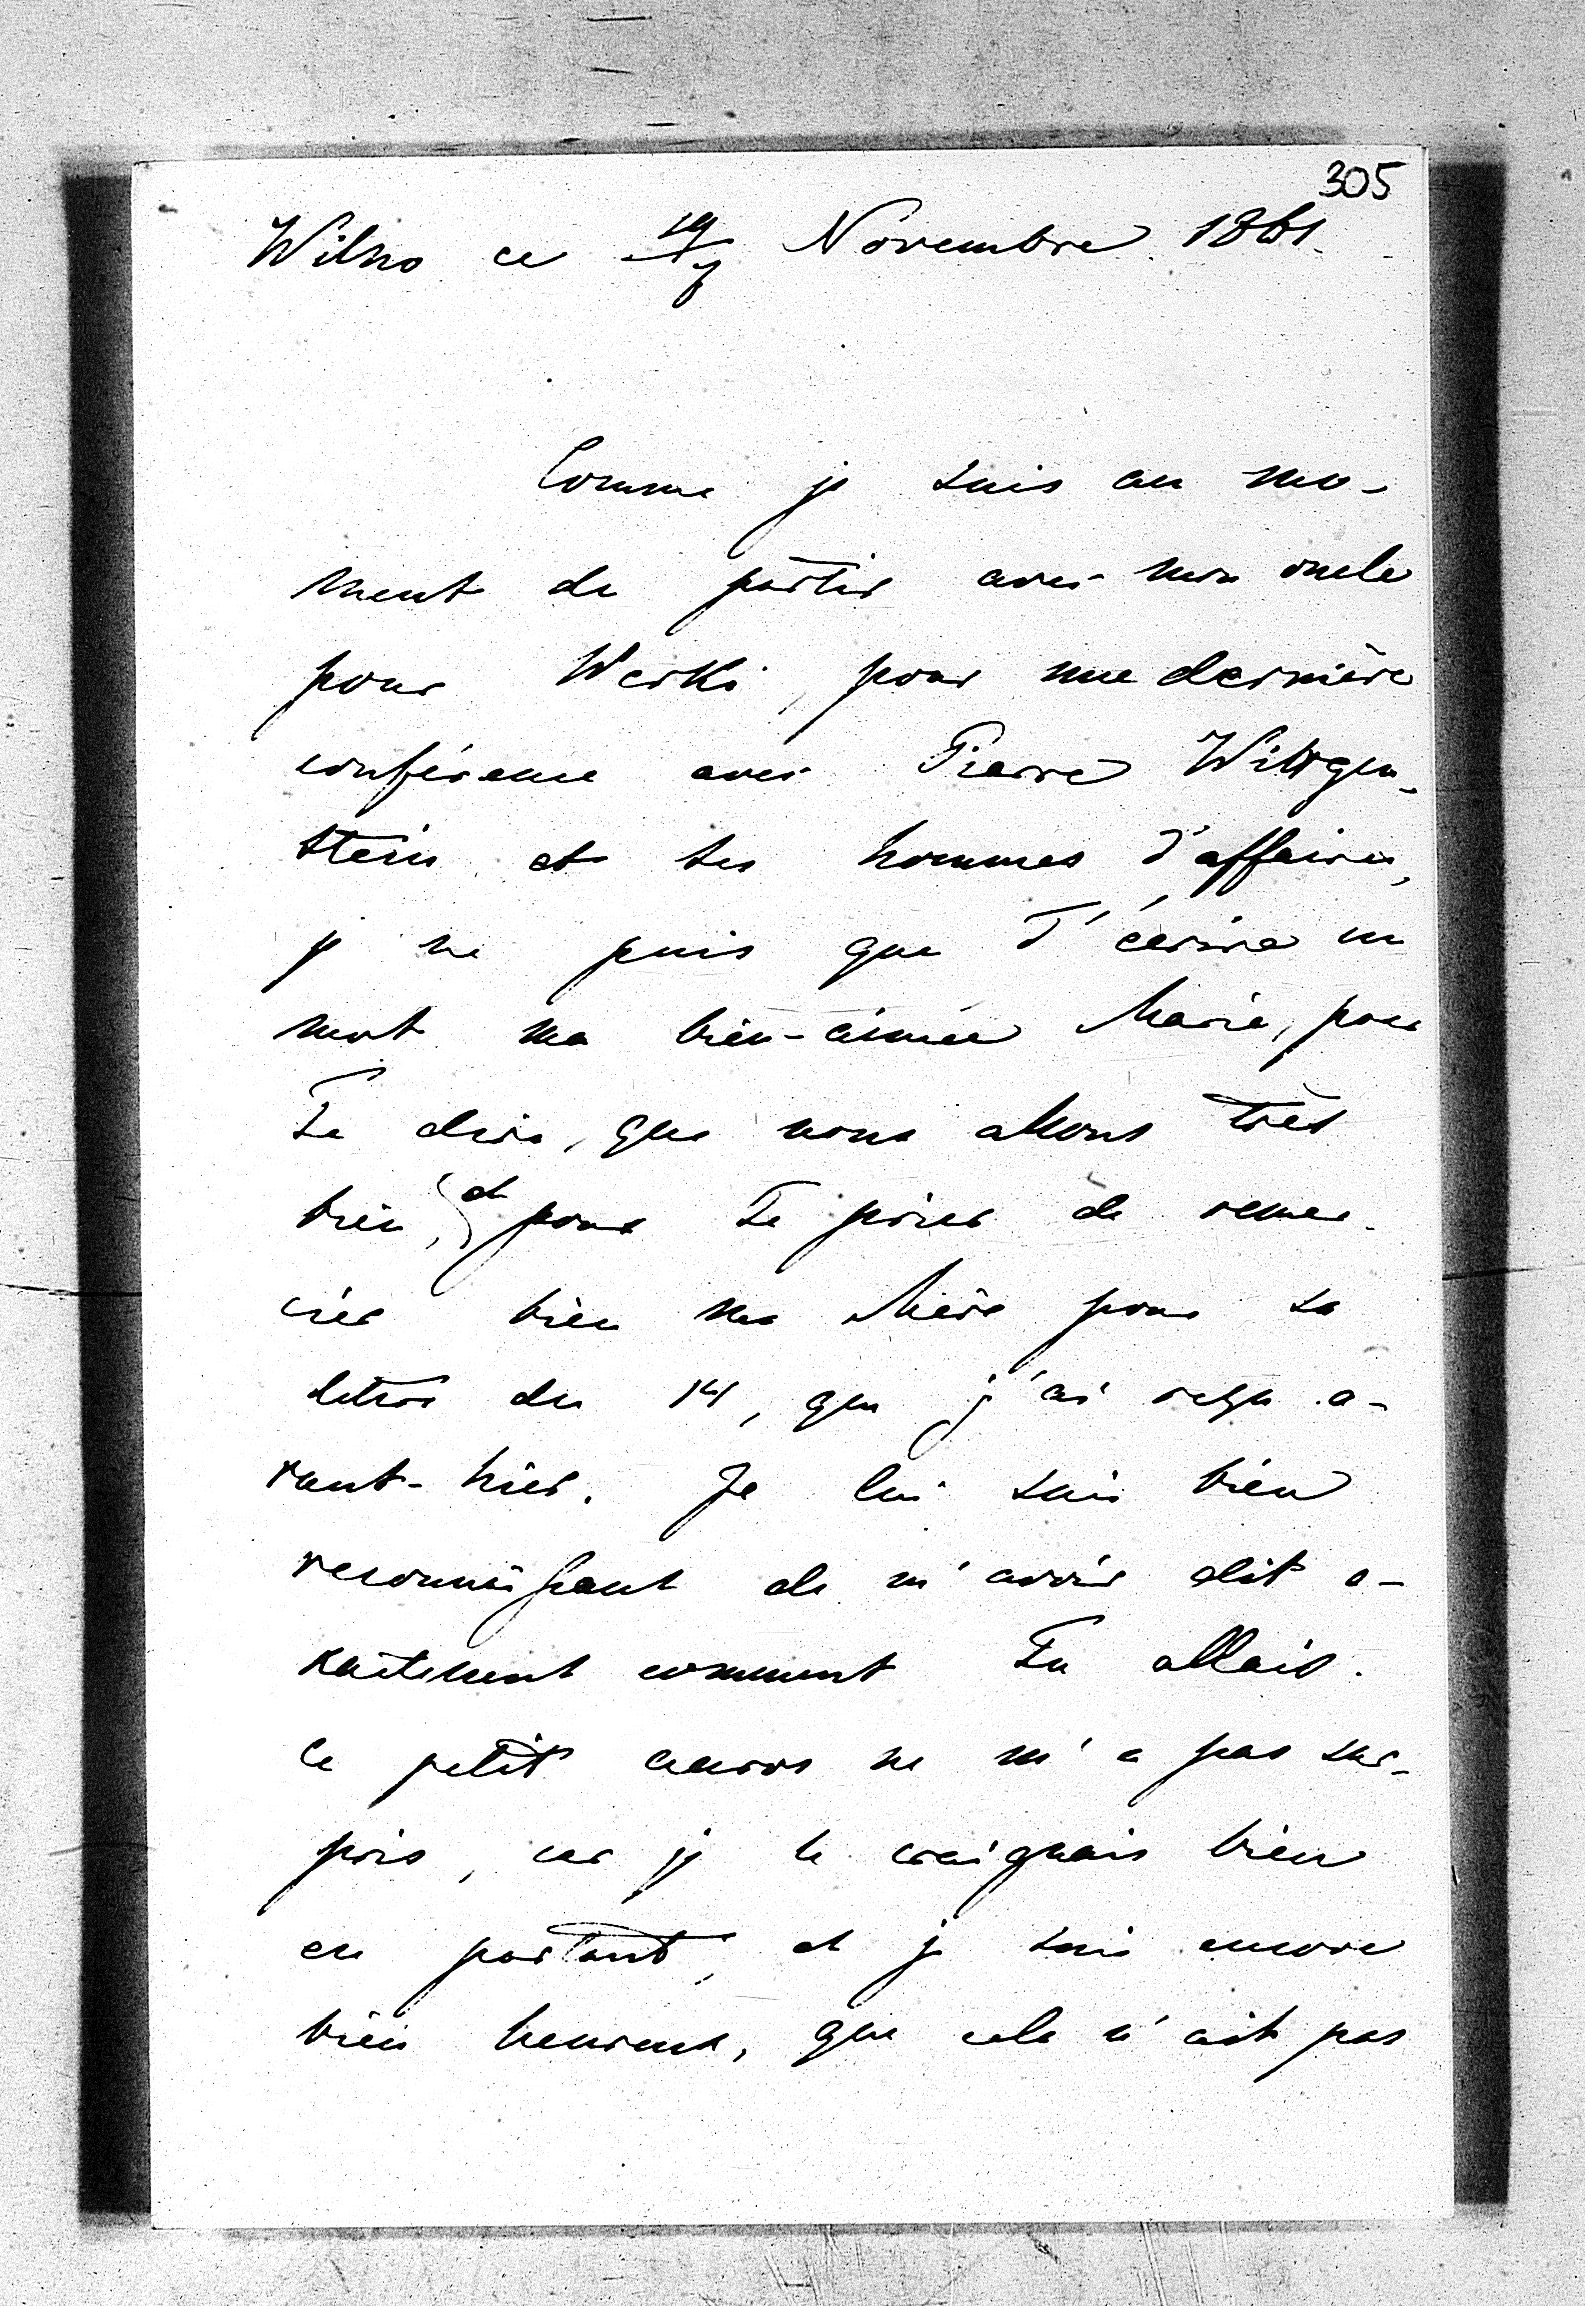 305
Wilno ce 19/7 Novembre 1861.
Comme je suis au mo-
ment de partir avec mon oncle
pour Werki, pour une dernière
conférence avec Pierre Wittgen-
stein et ses hommes d'affaires,
je ne puis que T'écrire un
mot ma bien-aimée Marie, pour
Te dire, que nous allons très
bien, et pour Te prier de remer-
cier bien ma Mère pour sa
lettre du 14, que j'ai reçu a-
vant-hier. Je lui suis bien
reconnaissant de m'avoir dit e-
xactement comment Tu allais.
Ce petit accroc ne m'a pas sur-
pris, car je le craignais bien
en partant, et je suis encore
bien heureux, que cela n'ait pas